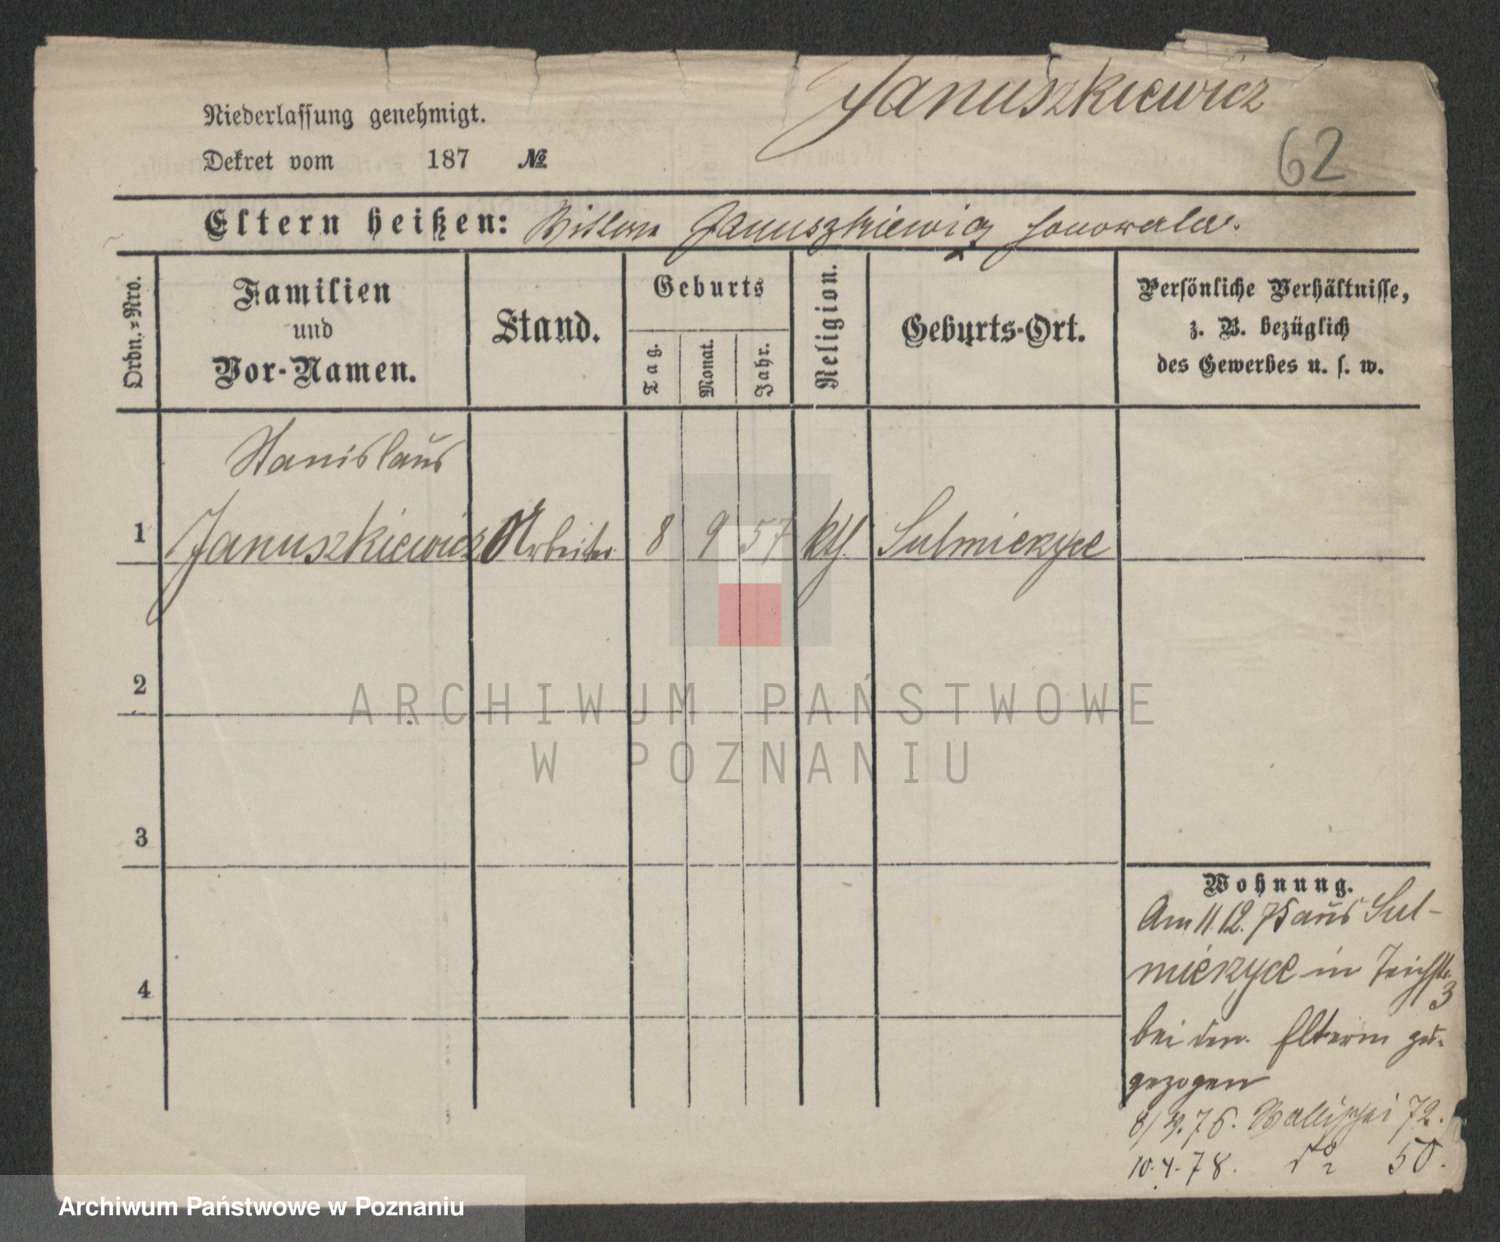 Januszkiewicz
62
Niederlassung genehmigt.
Dekret vom 187 №
Eltern heißen: Januszkiewicz
Ordn.=Nro.
Familien
und
Vor-Namen.
Stand.
Geburts
Tag.
Monat.
Jahr.
Religion.
Geburts-Ort.
Persönliche Verhältnisse,
z. B. bezüglich
des Gewerbes u. s. w.
Stanislaus
1 Januszkiewicz Arbeiter 8 9 57 kth. Sulmierzyce
2
3
4
Wohnung.
Am 11.12.75 aus Sul-
mierzyce in Teichstr.
3
bei den Eltern zu-
gezogen
76. Wallischei 72.
10.4.78. do 50.
ARCHIWUM PAŃSTWOWE
W POZNANIU
Archiwum Państwowe w Poznaniu